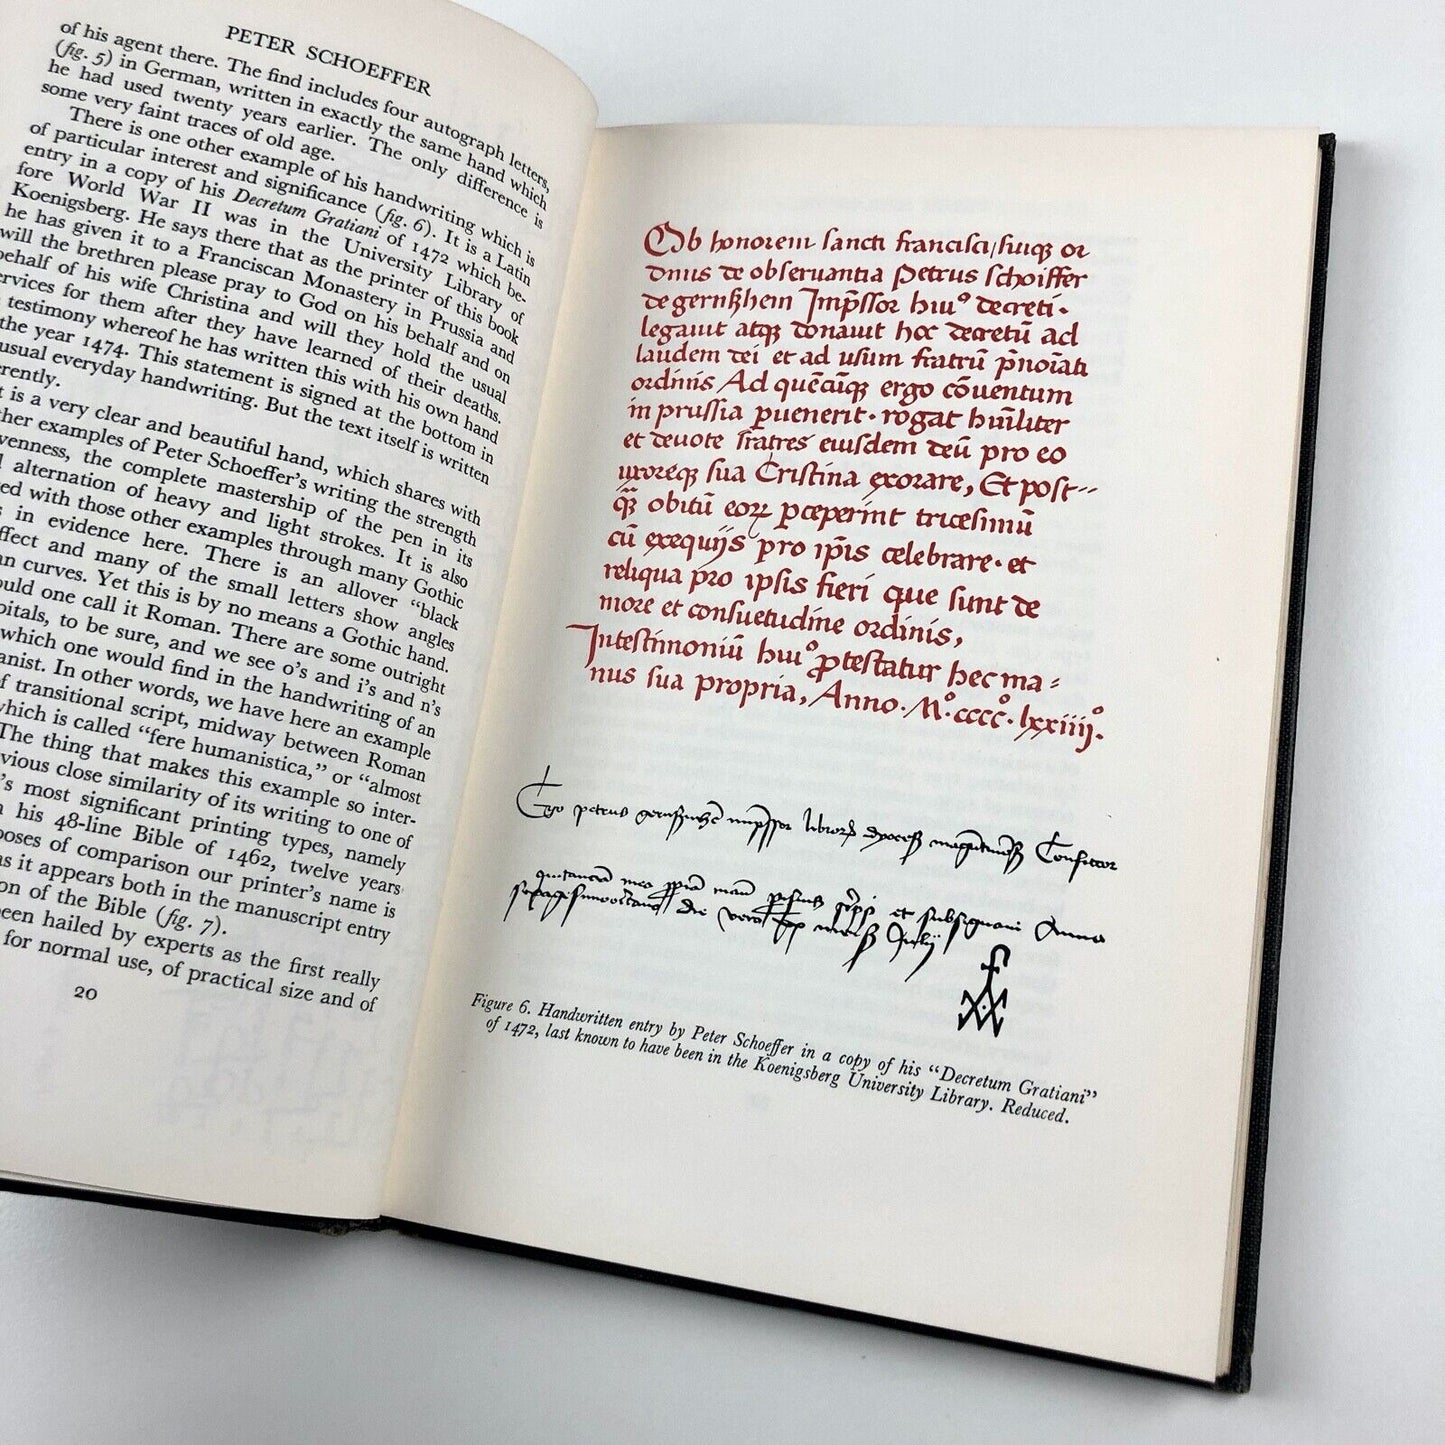 PETER SCHOEFFER
of his agent there. The find includes four autograph letters,
(fig. 5) in German, written in exactly the same hand which
he had used twenty years earlier. The only difference is
some very faint traces of old age.
There is one other example of his handwriting which is
of particular interest and significance (fig. 6). It is a Latin
entry in a copy of his Decretum Gratiani of 1472 which be-
fore World War II was in the University Library of
Koenigsberg. He says there that as the printer of this book
he has given it to a Franciscan Monastery in Prussia and
will the brethren please pray to God on his behalf and on
behalf of his wife Christina and will they hold the usual
services for them after they have learned of their deaths.
testimony whereof he has written this with his own hand
the year 1474. This statement is signed at the bottom in
usual everyday handwriting. But the text itself is written
erently.
t is a very clear and beautiful hand, which shares with
ther examples of Peter Schoeffer's writing the strength
venness, the complete mastership of the pen in its
l alternation of heavy and light strokes. It is also
ed with those other examples through many Gothic
s in evidence here. There is an allover "black
ffect and many of the small letters show angles
an curves. Yet this is by no means a Gothic hand.
ould one call it Roman. There are some outright
pitals, to be sure, and we see o's and i's and n's
which one would find in the handwriting of an
anist. In other words, we have here an example
f transitional script, midway between Roman
which is called "fere humanistica," or "almost
The thing that makes this example so inter-
vious close similarity of its writing to one of
's most significant printing types, namely
n his 48-line Bible of 1462, twelve years
poses of comparison our printer's name is
as it appears both in the manuscript entry
on of the Bible (fig. 7).
een hailed by experts as the first really
for normal use, of practical size and of
20
Ob honorem sancti francisci, suiqꝫ or
dinis de obseruantia Petrus schoiffer
de gernßhem Imp̄ssor huiꝰ decreti·
legauit atqꝫ donauit hoc decretū ad
laudem dei et ad usum fratrū p̄noīati
ordinis Ad quēcūqꝫ ergo cōuentum
in prussia ꝑuenerit· rogat hūiliter
et deuote fratres eiusdem deū pro eo
uxoreqꝫ sua Cristina exorare, Et post-
qꝫ obitū eoꝝ ꝑceperint tricesimū
cū exequijs pro ip̄is celebrare· et
reliqua pro ipsis fieri que sunt de
more et consuetudine ordinis,
Intestimoniū huiꝰ ꝓtestatur hec ma-
nus sua propria, Anno· Mº ccccº· lxxiiijº.
Ego petrus
et subsignaui Anno
die vero mensß Julij
Figure 6. Handwritten entry by Peter Schoeffer in a copy of his "Decretum Gratiani"
of 1472, last known to have been in the Koenigsberg University Library. Reduced.